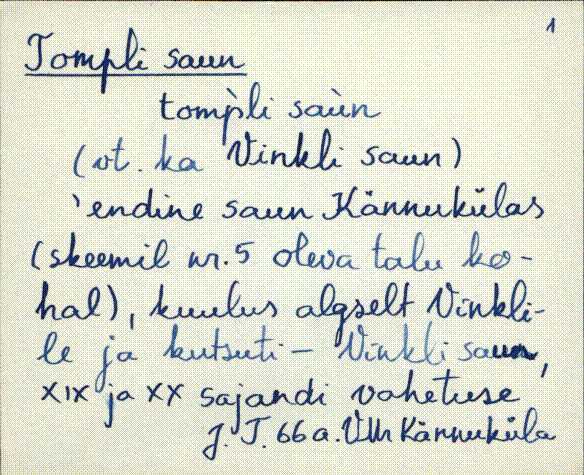 1
Tompli saun
tomp̀li saùn
(vt. ka Vinkli saun)
'endine saun Kännukülas
(skeemil nr. 5 oleva talu ko-
hal), kuulus algselt Vinkli-
le ja kutsuti – Vinkli saun,
XIX ja XX sajandi vahetuse
J. T. 66 a. VMr Kännuküla